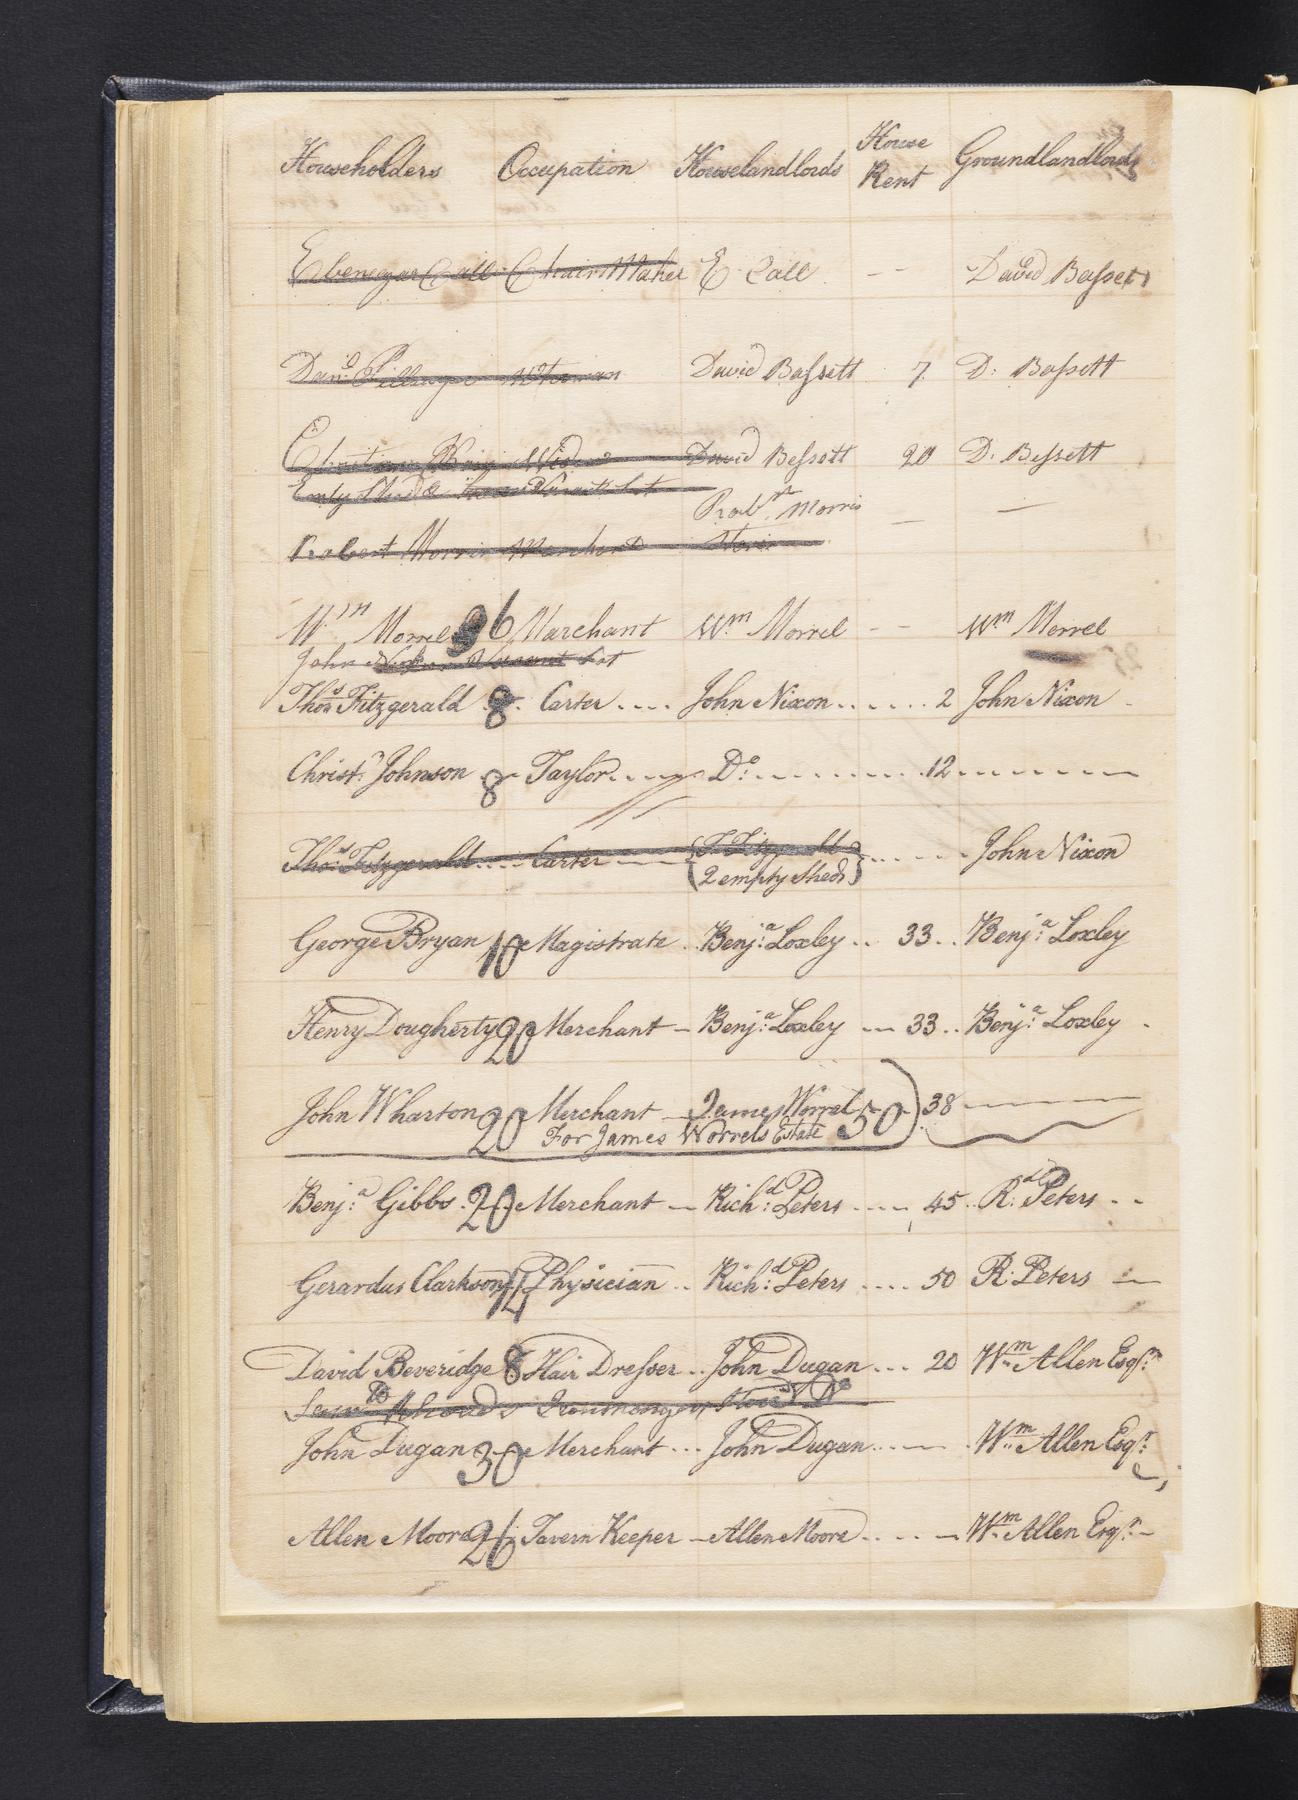 Householders Occupation Houselandlords House Rent Groundlandlords
Ebenezar Call Chair Maker E Call - - David Bassett
Dan.d David Bassett 7 D: Bassett
Wid.o David Bessett 20 D. Bessett
Emty
Rob.t Morris - -
Robert Morris Merchant Stores
W.m Morrel 96 Marchant W.m Morrel - - W.m Merrel
John Nixon Vacant Lot
Tho.s Fitzgerald 8 Carter .... John Nixon ...... 2 John Nixon
Christ.r Johnson 8 Taylor .... D.o ........ 12 ------
Tho.s Fitzgerald .... Carter --- T. Fitzgerald ...... John Nixon
(2 empty Sheds)
George Bryan 10 Magistrate .. Benj.a Loxley .. 33 .. Benj.a Loxley
Henry Dougherty 20 Merchant - Benj.a Loxley -- 33 .. Benj.a Loxley -
John Wharton 20 Merchant - James Worrel 50 ) 38 ------
For James Worrels Estate
Benj.a Gibbs . 20 Merchant -- Rich.d Peters .... 45 .. R.d Peters --
Gerardus Clarkson 14 Physician .. Rich.d Peters .... 50 R. Peters --
David Beveridge 8 Hair Dresser .. John Dugan ... 20 W.m Allen Esq.r
Rhoads Ironmonger, Store D.o
John Dugan 30 Merchant ... John Dugan .. --- W.m Allen Esq.r
Allen Moore 26 Tavern Keeper - Allen Moore .. --- W.m Allen Esq.r -